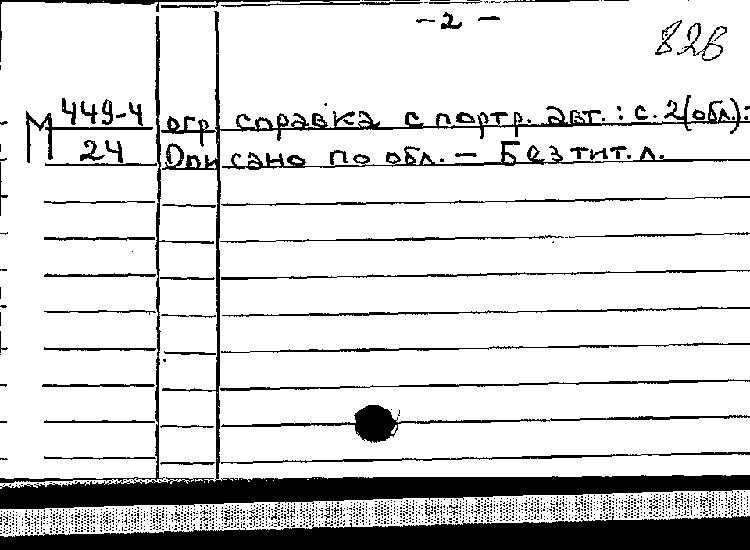 – 2 –
826
М 449-4
24
огр справка с портр. авт. : с. 2 (обл.) :
Описано по обл. – Без тит. л.